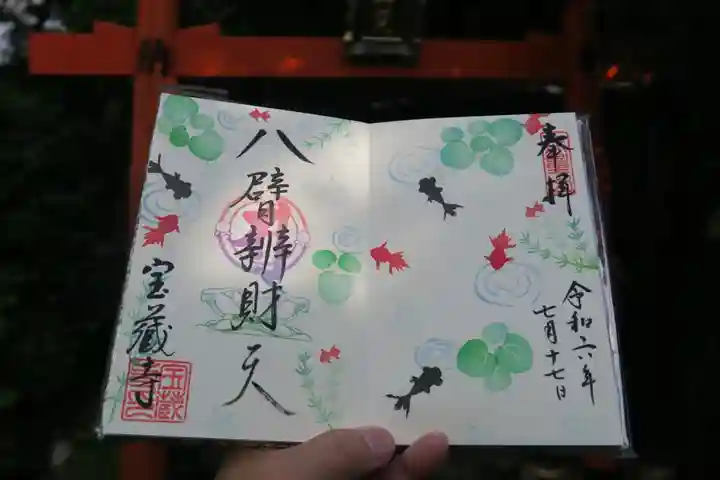 奉拝
令和六年
七月十七日
八臂辨財天
宝蔵寺